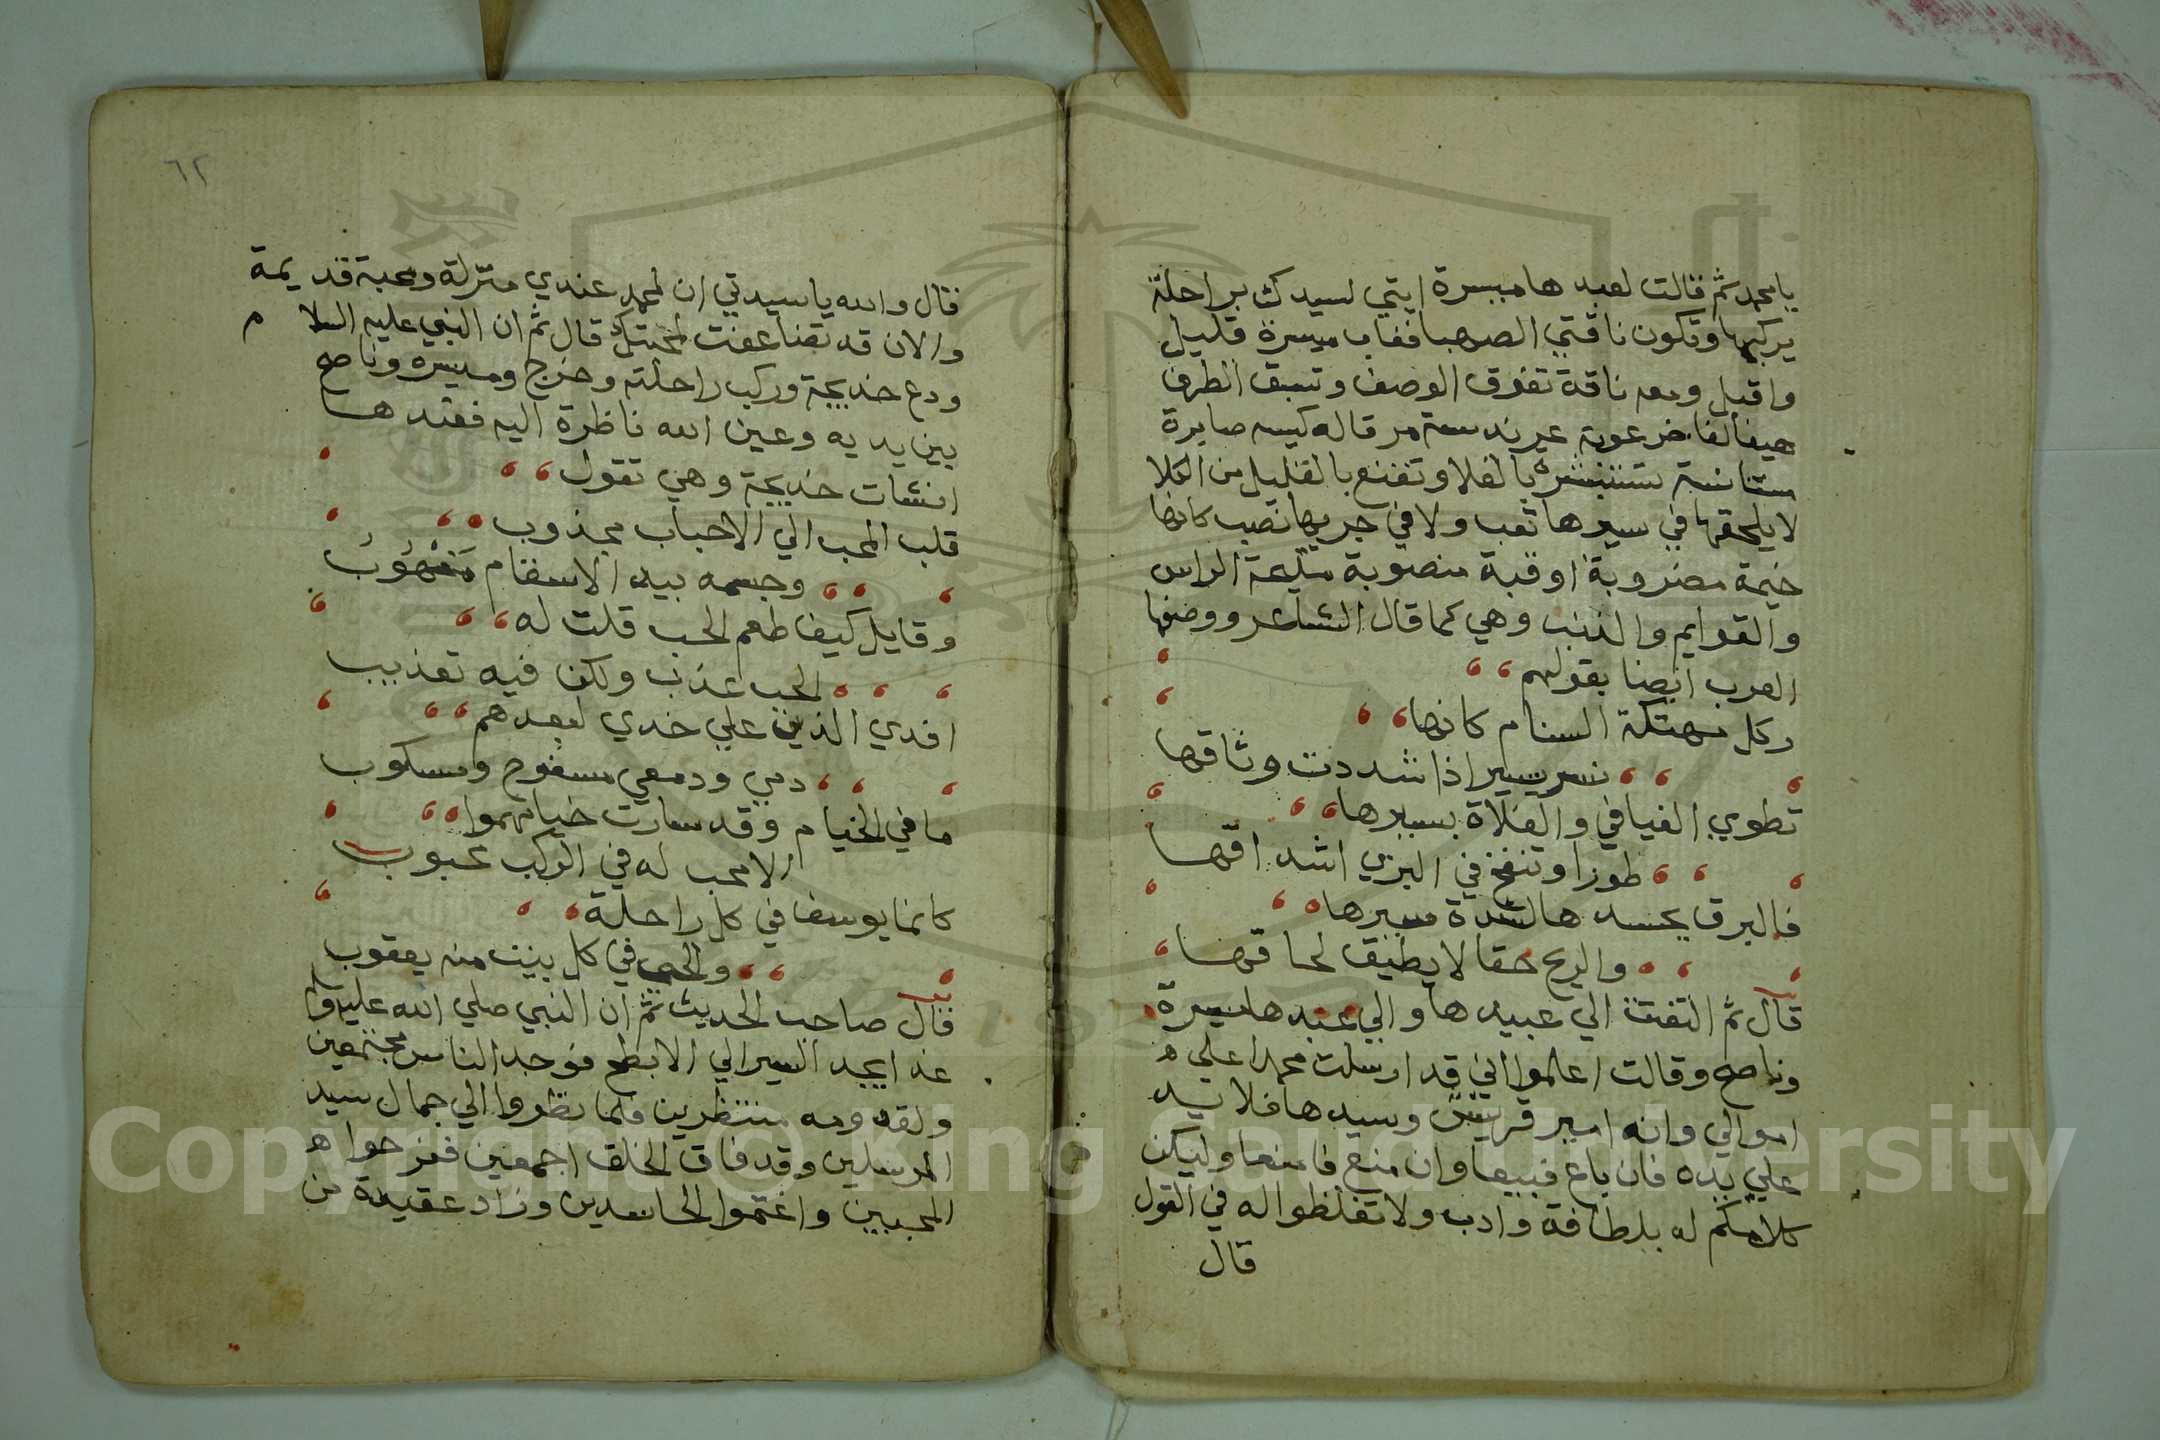 يا محمد ثم قالت لعبدها ميسرة ايتي لسيدك براحلة
يركبها وتكون ناقتي الصهبا فغاب ميسرة قليل
واقبل ومعه ناقة تفوق الوصف وتسبق الطرف
صابرة
بالفلا وتقنع بالقليل من الكلا
لا يلحقها في سيرها تعب ولا في جريها نصب كانها
خيمة مضروبة او قبة منصوبة مليحة الراس
والقوايم والذنب وهي كما قال الشاعر ووصفها
العرب ايضا بقولهم
وكل مهتكة السنام كانها
اذا شددت وثاقها
تطوي الفيافي والفلاة بسيرها
طورا وتنفخ في البري اشداقها
فالبرق يحسدها لشدة سيرها
والريح حقا لا يطيق لحاقها
قال ثم التفتت الي عبيدها والي عبدها ميسرة
وناصح وقالت اعلموا اني قد ارسلت محمدا علي
اموالي وانه امير قريش وسيدها فلا يد
علي يده فان باع فبيعا وان منع فامنعا وليكن
كلامكم له بلطافة وادب ولا تغلظوا له في القول
قال
٦٢
فقال والله يا سيدتي ان لمحمد عندي منزلة ومحبة قديمة
والان قد تضاعفت لمحبتك قال ثم ان النبي عليه السلام
ودع خديجة وركب راحلته وخرج وميسره وناصح
بين يديه وعين الله ناظرة اليه فعندها
انشات خديجة وهي تقول
قلب المحب الي الاحباب مجذوب
وجسمه بيد الاسقام منهوب
وقايل كيف طعم الحب قلت له
الحب عذب ولكن فيه تعذيب
افدي الذين علي خدي لبعدهم
دمي ودمعي مسفوح ومسكوب
ما في الخيام وقد سارت خيامهموا
الا محب له في الركب محبوب
كانما يوسف في كل راحلة
والحي في كل بيت منه يعقوب
قال صاحب الحديث ثم ان النبي صلي الله عليه وسلم
غدا يجد السير الي الابطح فوجد الناس مجتمعين
ولقدومه منتظرين فلما نظروا الي جمال سيد
المرسلين وقد فاق الخلق اجمعين ففرحوا
المحبين واغتموا الحاسدين وزاد عقيدة من
Copyright © King Saud University